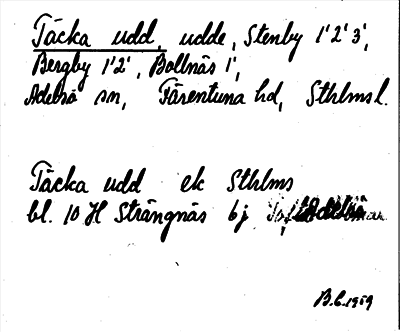 Täcka udd, udde, Stenby 1'2'3',
Bergby 1'2', Bollnäs 1',
Adelsö sn, Färentuna hd, Sthlms l.
Täcka udd ek Sthlms
bl. 10 H Strängnäs bj
B.C. 1959